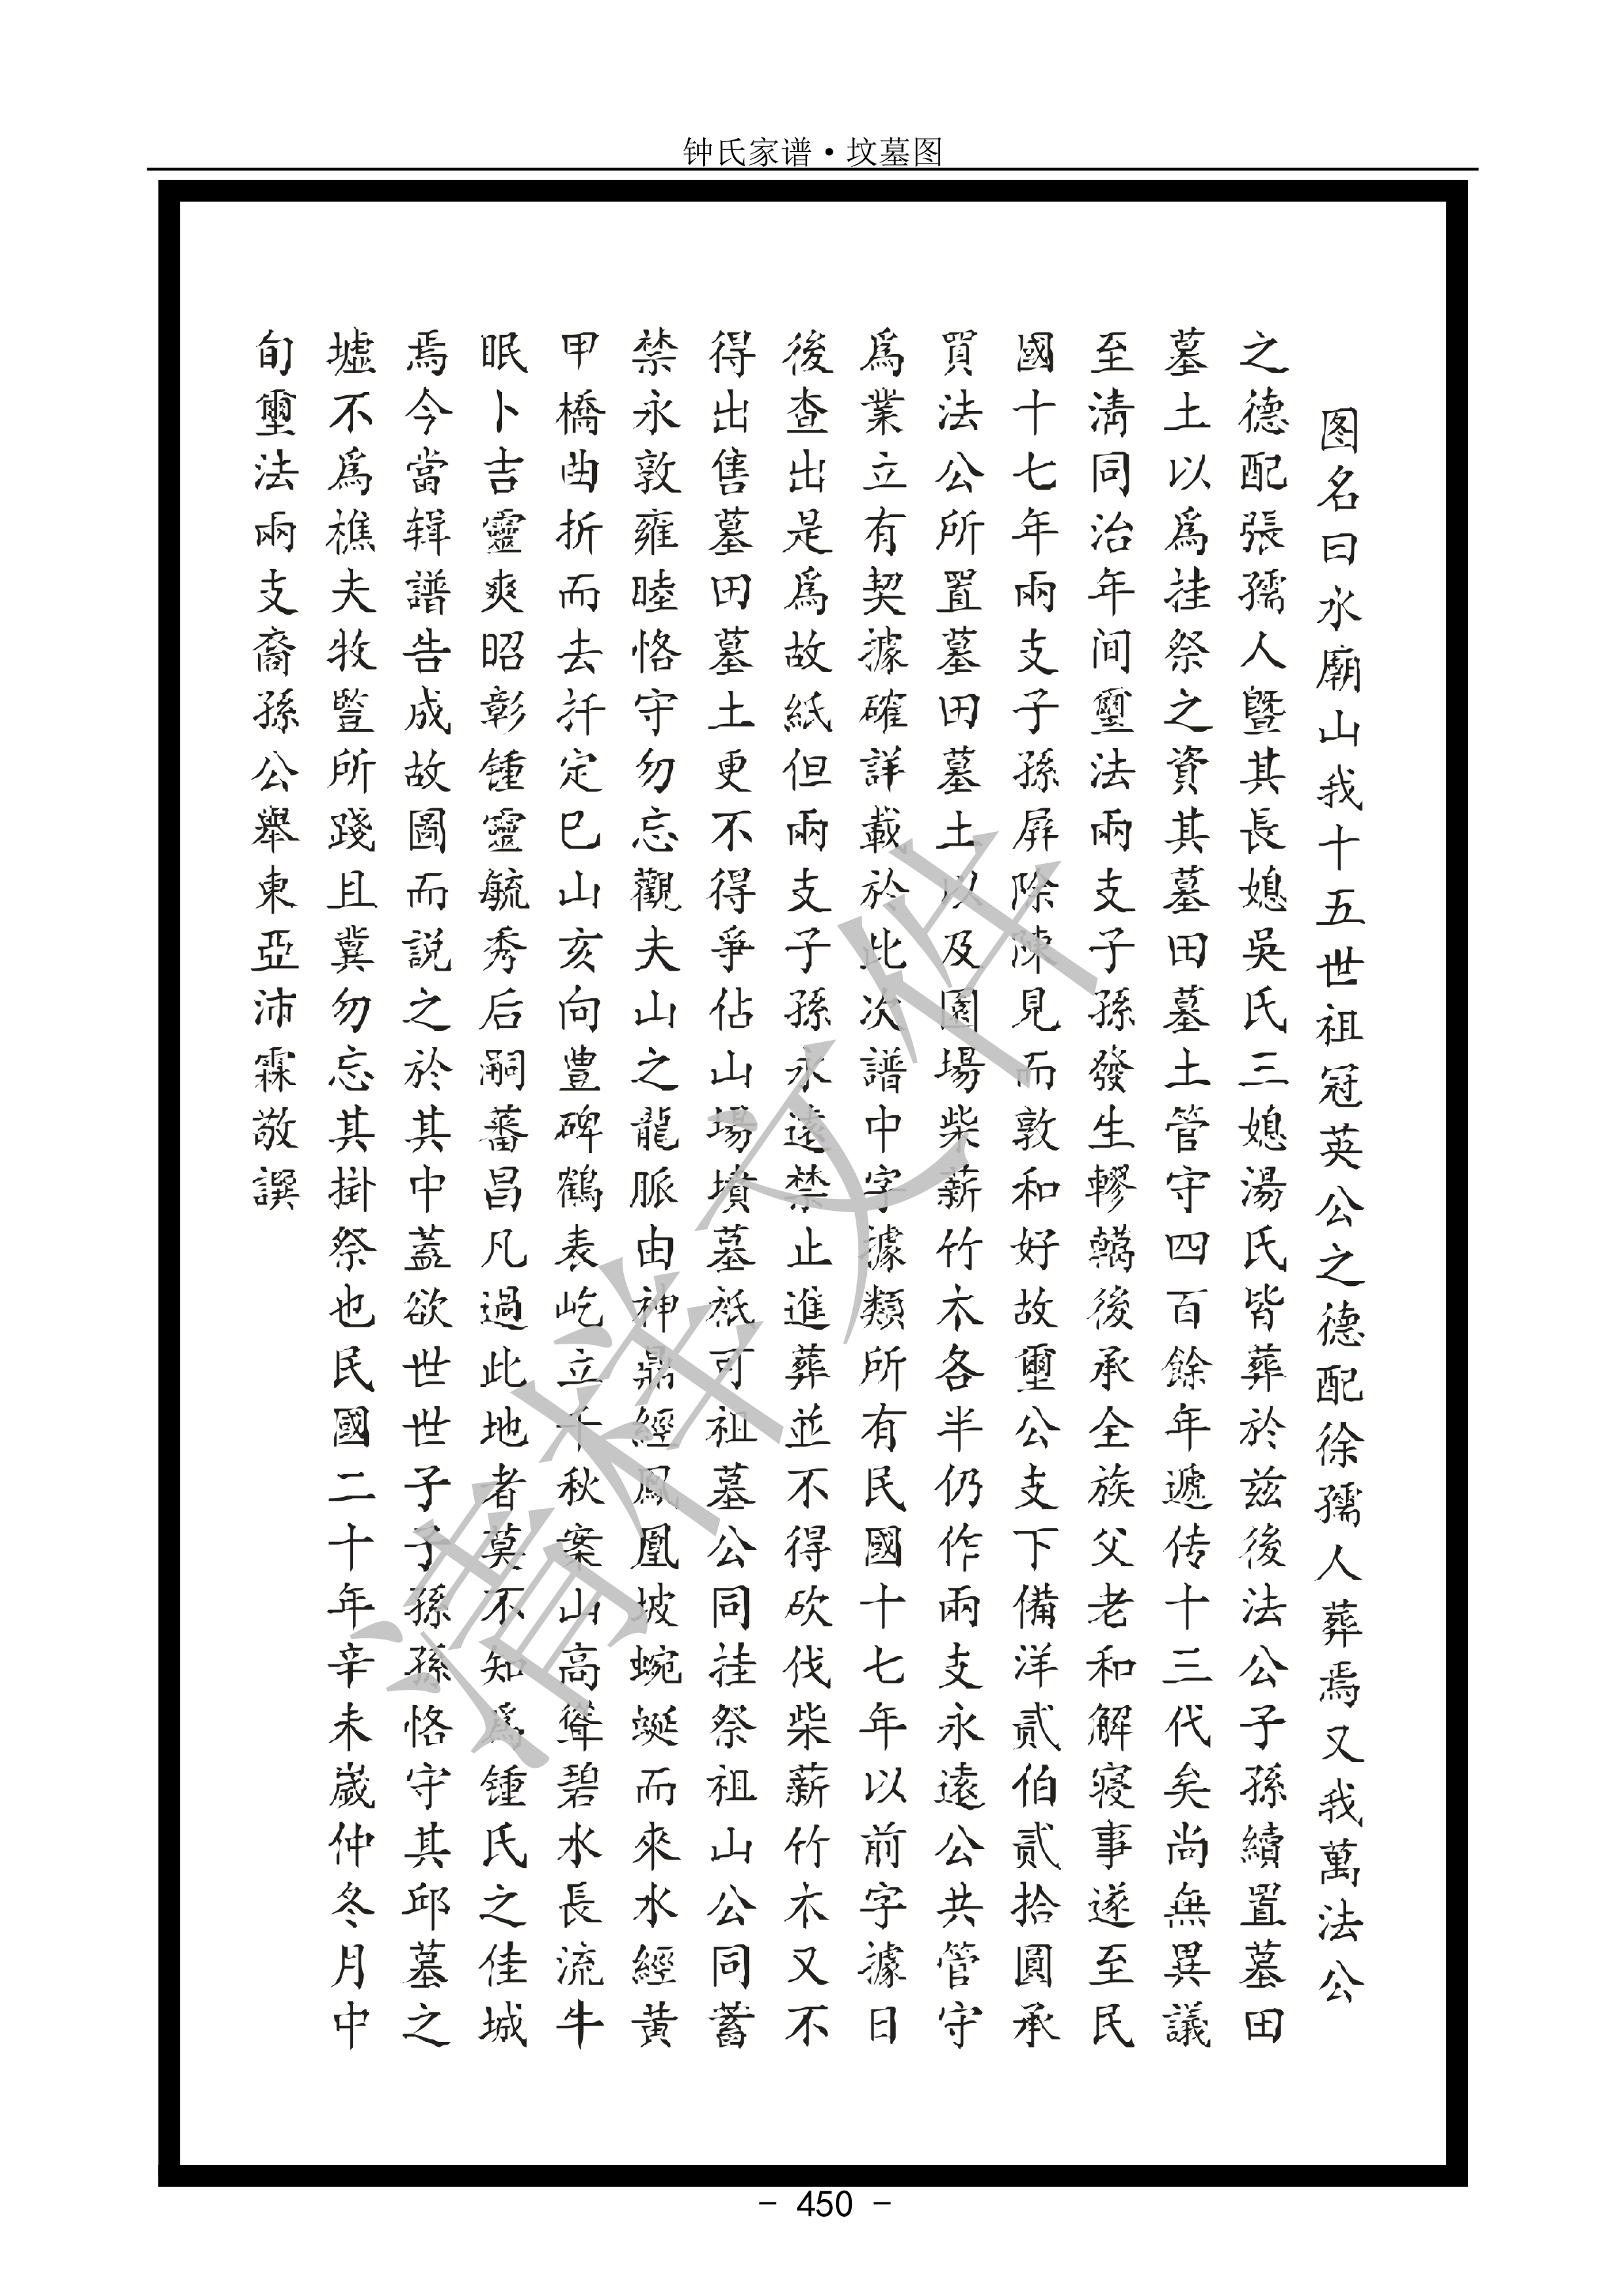 钟氏家谱·坟墓图
图名曰水廟山我十五世祖冠英公之德配徐孺人葬焉又我萬法公
之德配張孺人暨其長媳吳氏三媳湯氏皆葬於兹後法公子孫續置墓田
墓土以爲挂祭之資其墓田墓土管守四百餘年遞传十三代矣尚無異議
至清同治年间璽法兩支子孫發生轇轕後承全族父老和解寝事遂至民
國十七年兩支子孫屏除陳見而敦和好故璽公支下備洋贰伯贰拾圓承
買法公所置墓田墓土以及園場柴薪竹木各半仍作兩支永遠公共管守
爲業立有契據確詳載於此次譜中字據類所有民國十七年以前字據日
後查出是爲故紙但兩支子孫永遠禁止進葬並不得砍伐柴薪竹木又不
得出售墓田墓土更不得爭佔山場墳墓衹可祖墓公同挂祭祖山公同蓄
禁永敦雍睦恪守勿忘觀夫山之龍脈由神鼎經鳳凰坡蜿蜒而來水經黄
甲橋曲折而去扦定巳山亥向豊碑鶴表屹立千秋案山高聳碧水長流牛
眠卜吉靈爽昭彰锺靈毓秀后嗣蕃昌凡過此地者莫不知爲锺氏之佳城
焉今當辑譜告成故圖而説之於其中蓋欲世世子子孫孫恪守其邱墓之
墟不爲樵夫牧豎所踐且冀勿忘其掛祭也民國二十年辛未嵗仲冬月中
旬璽法兩支裔孫公舉東亞沛霖敬譔
清样文件
- 450 -